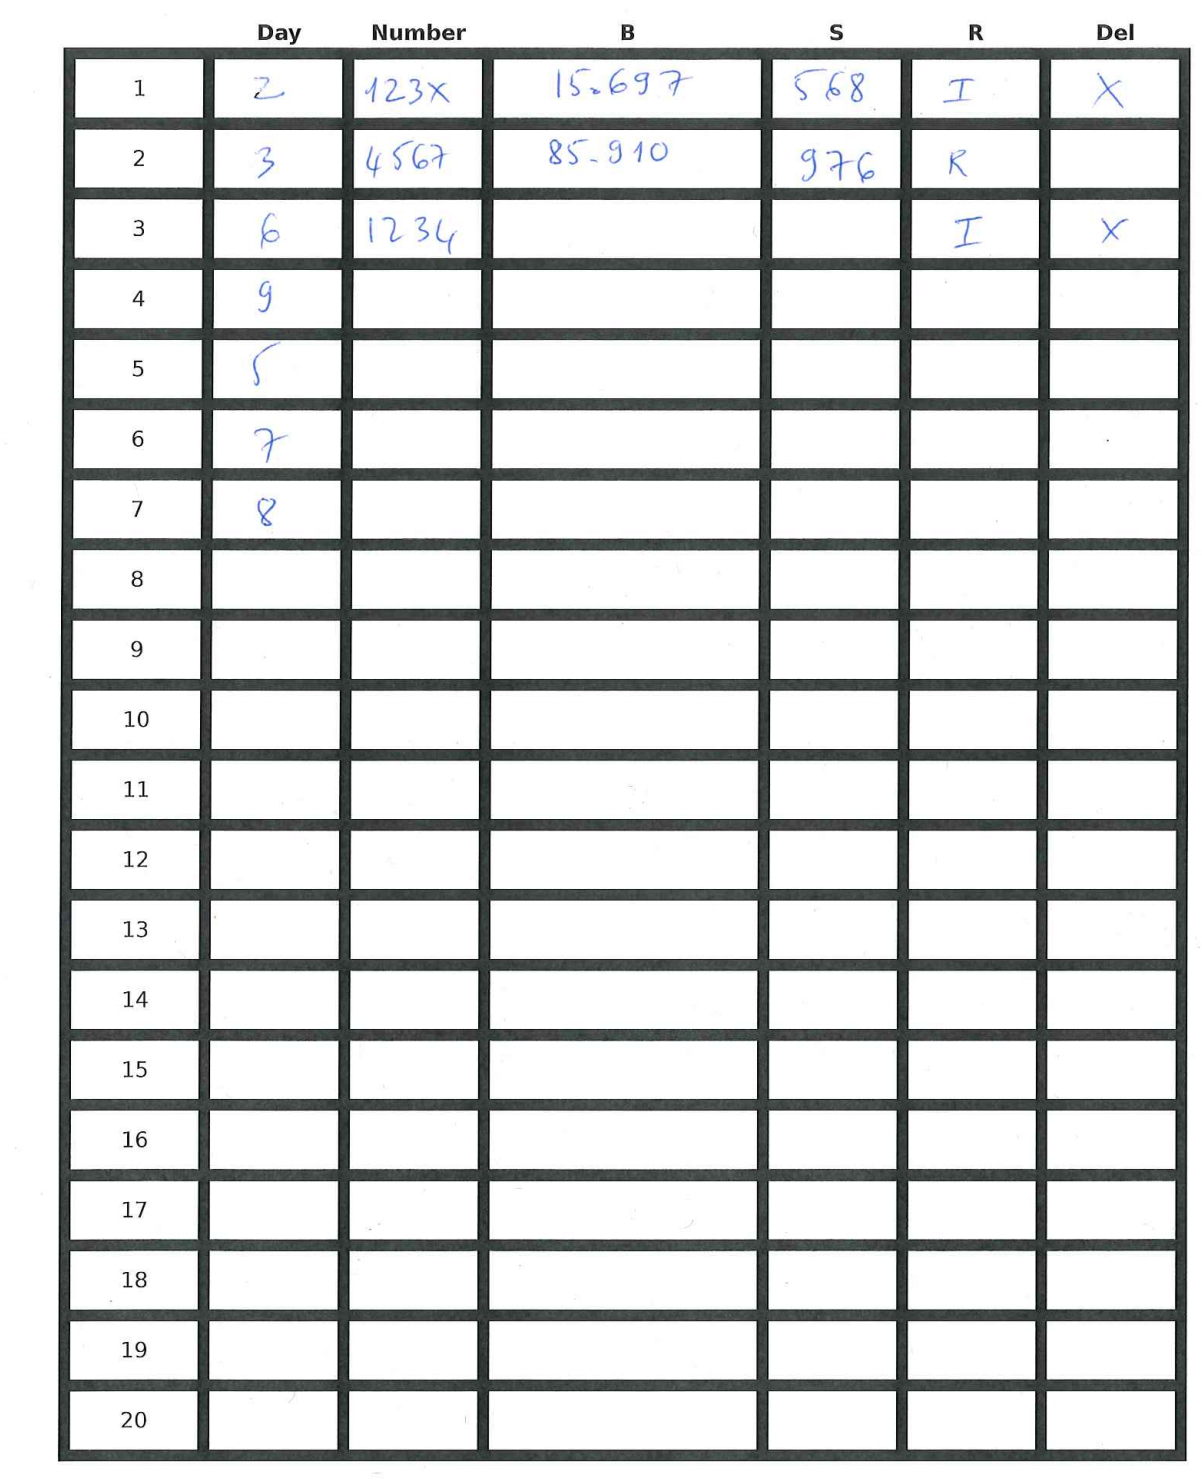 Day Number B S R Del
1 2 123X 15.697 568 I X
2 3 4567 85.910 976 R
3 6 1234 I X
4 9
5 5
6 7
7 8
8
9
10
11
12
13
14
15
16
17
18
19
20